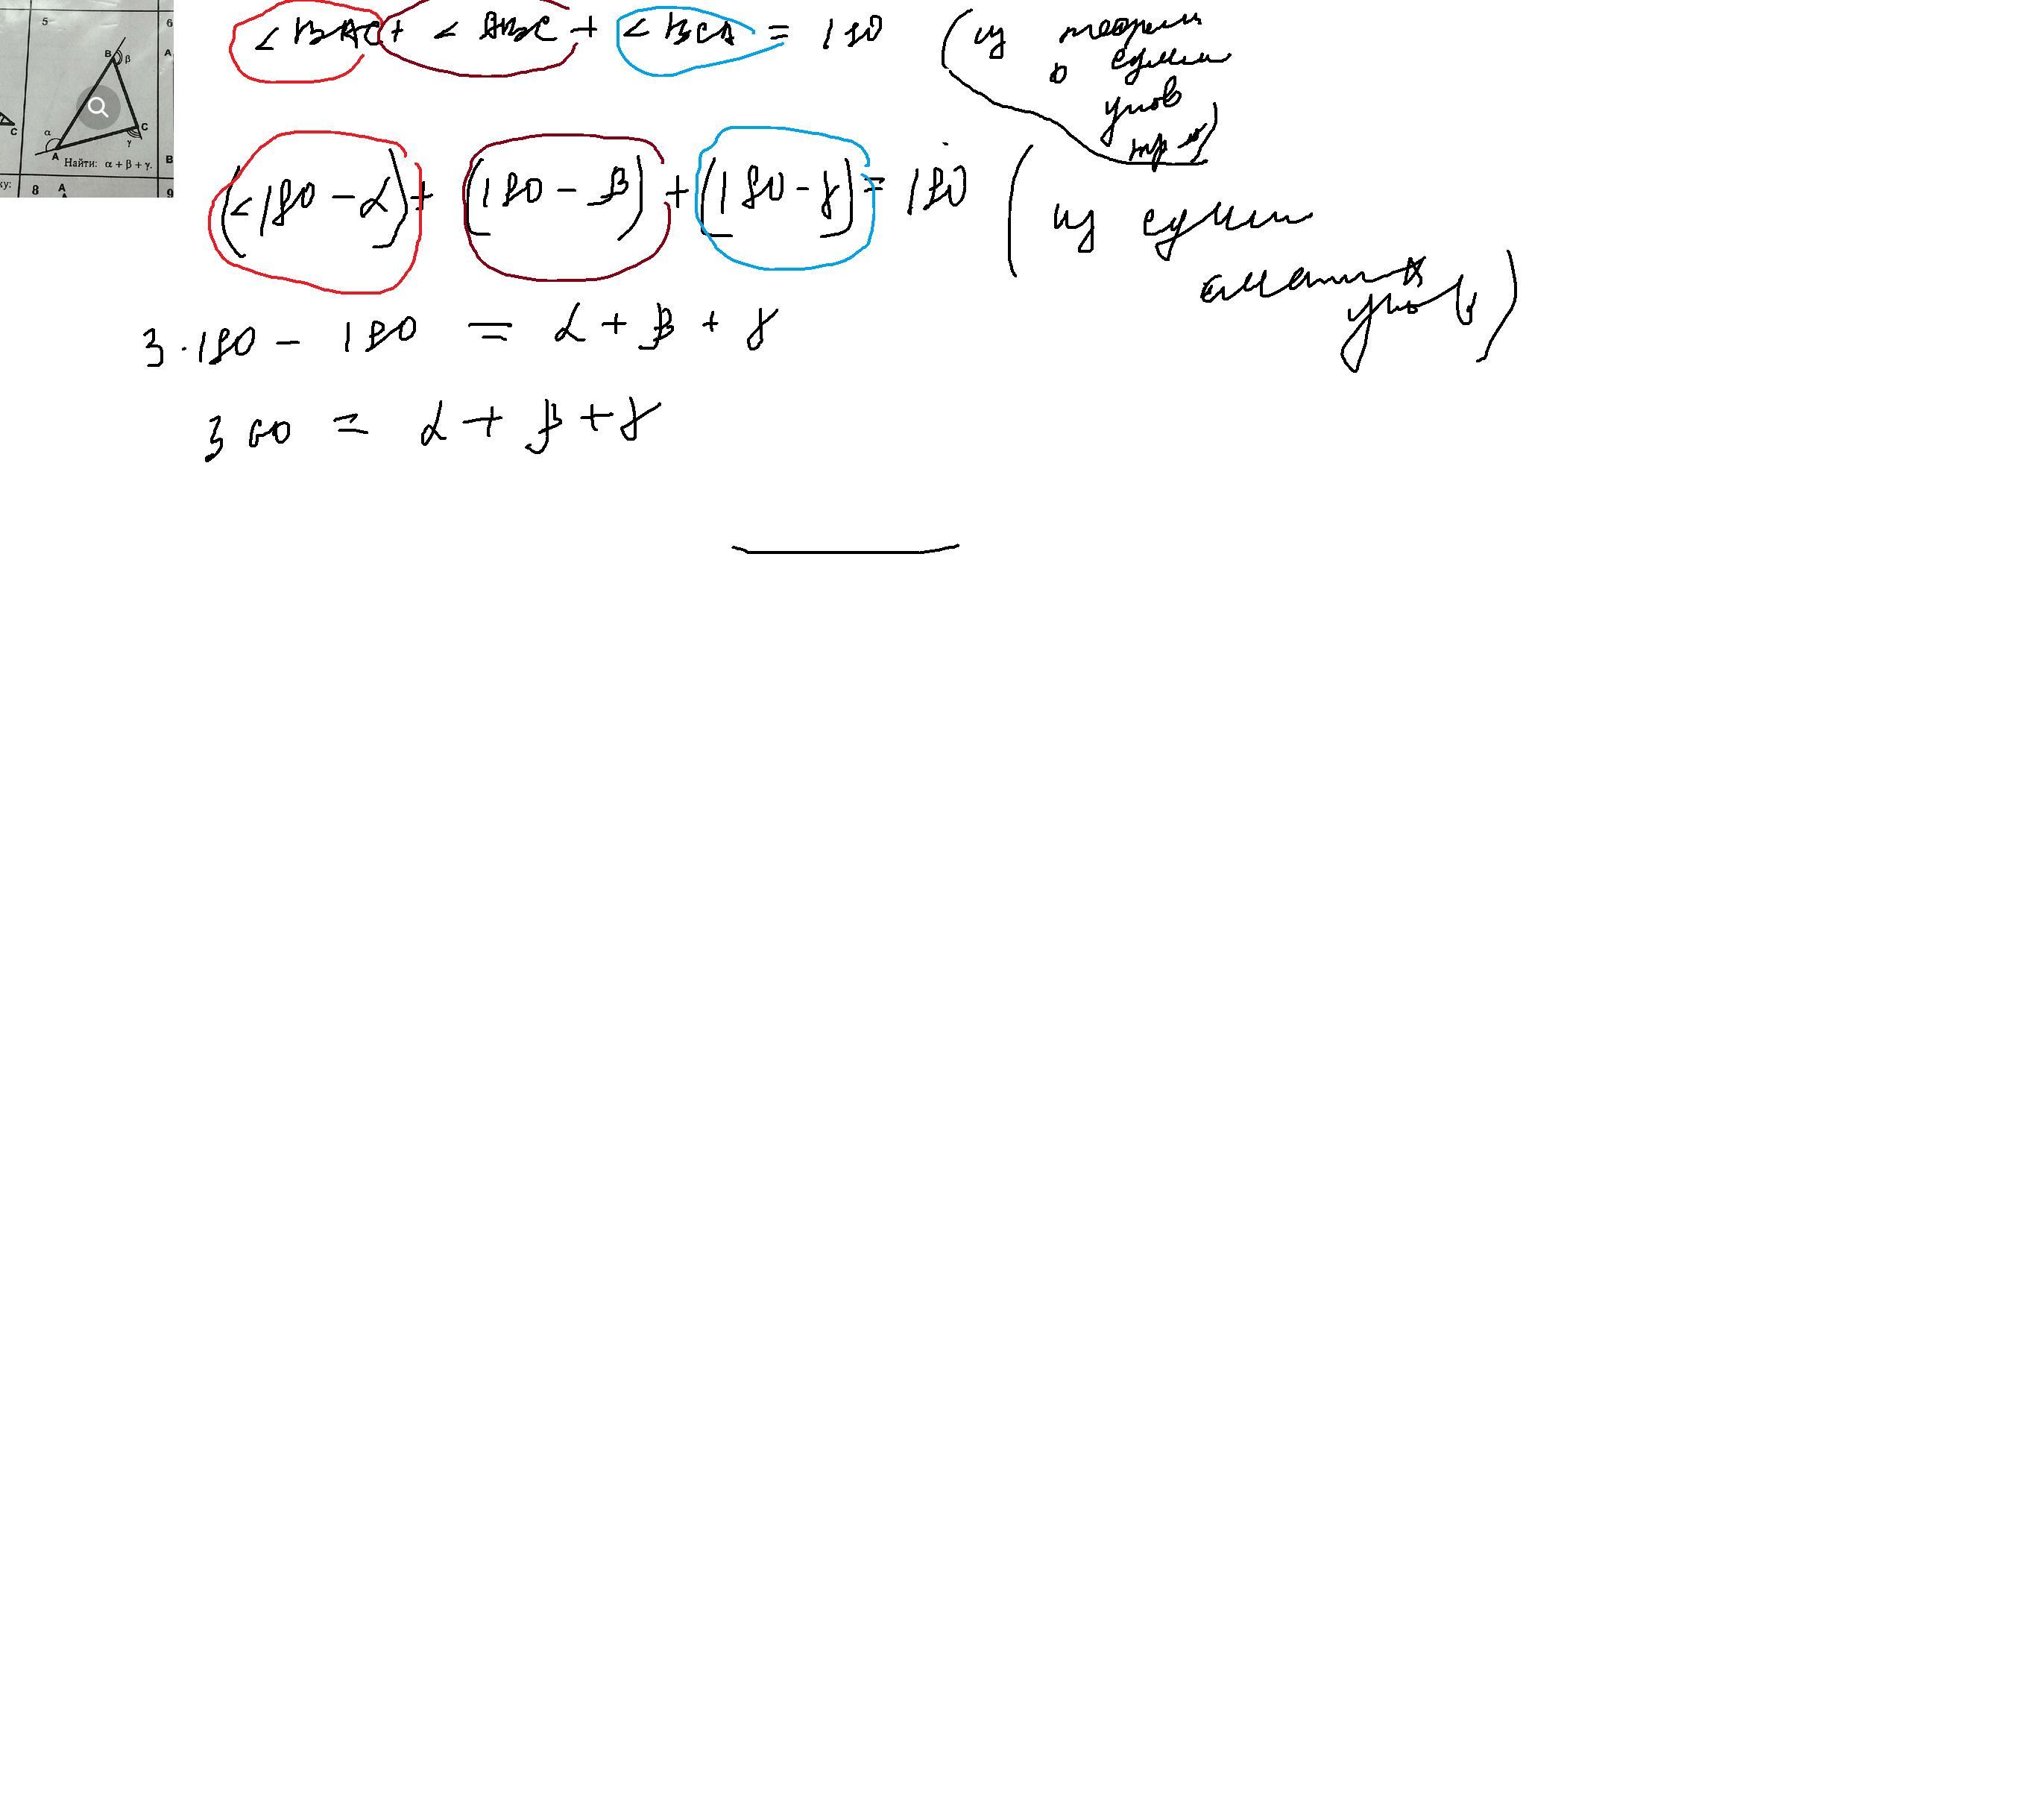 5
6
B
β
A
α
A
C
γ
C
Найти: α + β + γ.
B
ку:
8
A
9
∠BAC + ∠ABC + ∠BCA = 180
(из теоремы
о сумме
углов
тр-ка)
(∠180 - α) + (180 - β) + (180 - γ) = 180
(из суммы
смежных
углов)
3·180 - 180 = α + β + γ
360 = α + β + γ